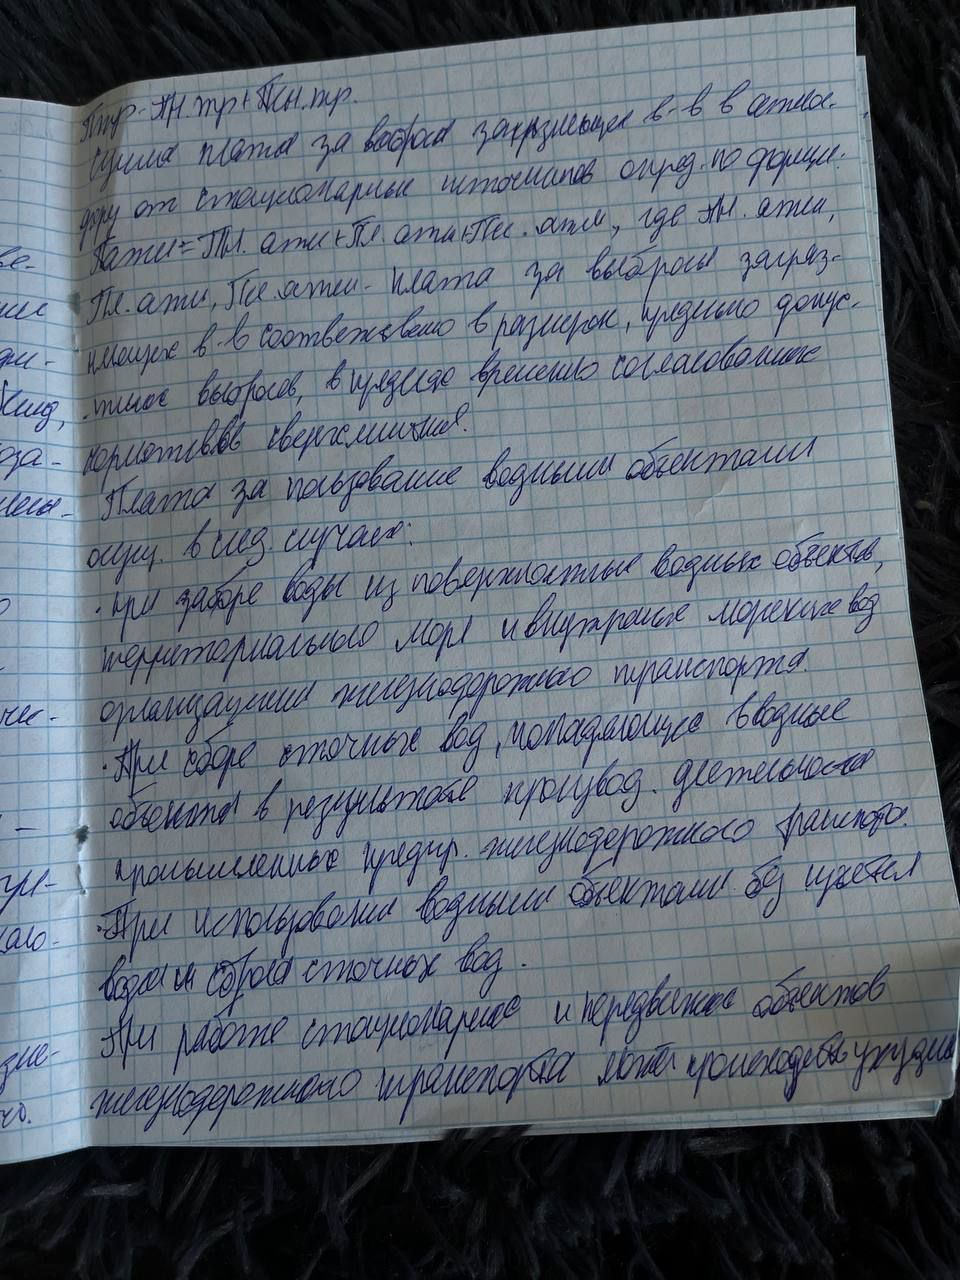 Ппр-Пн.тр+Псн.тр.
Сумма платы за выбросы загрязняющих в-в в атмос-
феру от стационарных источников опред. по формул.
Патм=Пн.атм+Пл.атм+Псл.атм, где Пн.атм,
Пл.атм, Псл.атм- плата за выбросы загряз-
няющих в-в соответственно в размерах, предельно допус-
тимых выбросов, в пределах временно согласованных
нормативов сверхлимитная.
Плата за пользование водными объектами
осущ. в след. случаях:
· при заборе воды из поверхностных водных объектов,
территориального моря и внутренних морских вод
организациями железнодорожного транспорта.
· При сборе сточных вод, попадающих в водные
объекты в результате производ. деятельности
промышленных предпр. железнодорожного транспорта.
· При использовании водными объектами без изъятия
воды и сброса сточных вод.
При работе стационарных и передвижных объектов
железнодорожного транспорта может происходить ухудше
ве-
ние
оза-
чи-
гри-
зне-